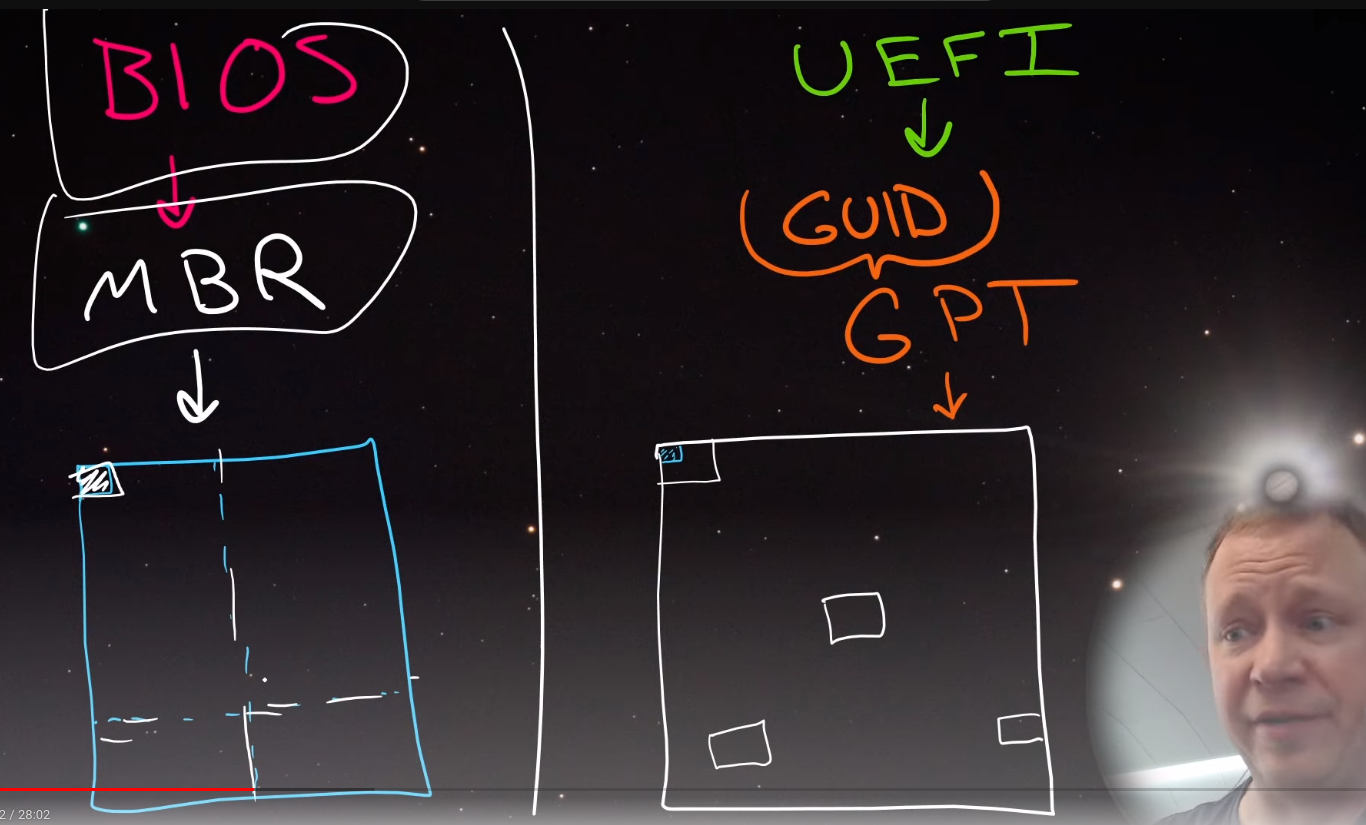 BIOS
MBR
UEFI
(GUID)
GPT
2 / 28:02